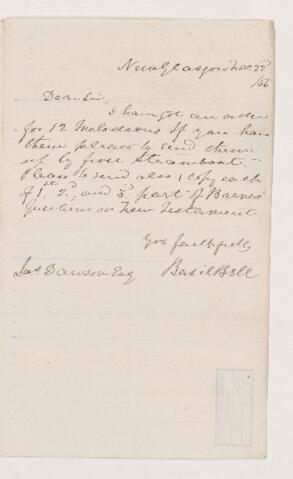 New Glasgow Dec 22d
/56
Dear Sir,
I have got an order
for 12 Melodeons If you have
them please to send them
up by first Steamboat. –
Please to send also 1 copy each
of 1st, 2d, and 3d part of Barnes'
Questions on New Testament.
Yrs faithfully
Jas Dawson Esq Basil Bell